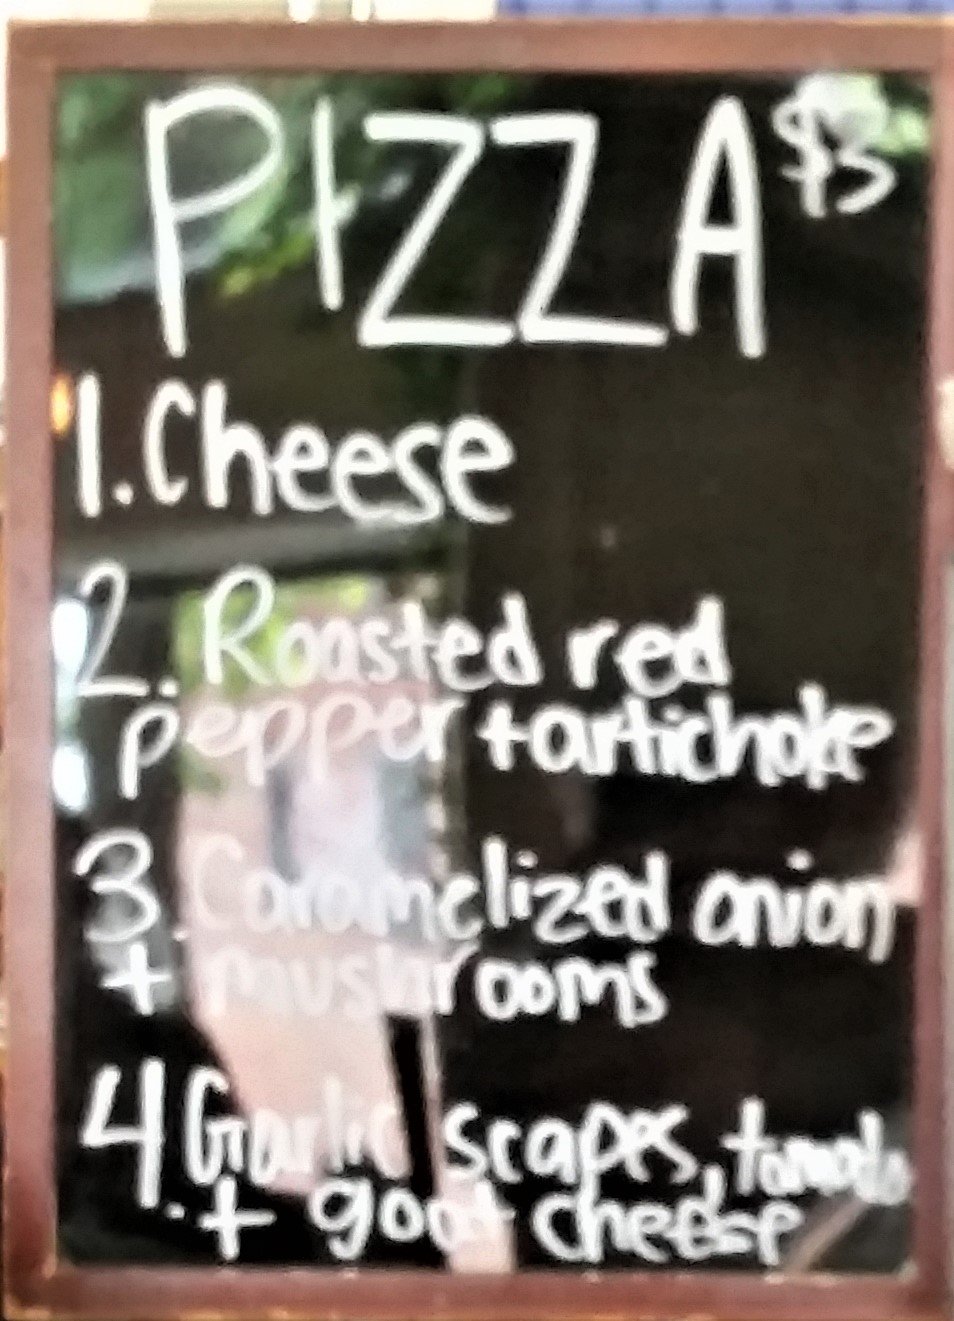 PIZZA $3
1. Cheese
2. Roasted red
pepper + artichoke
3. Caramelized onion
+ mushrooms
4. Garlic scapes, tomato
+ goat cheese